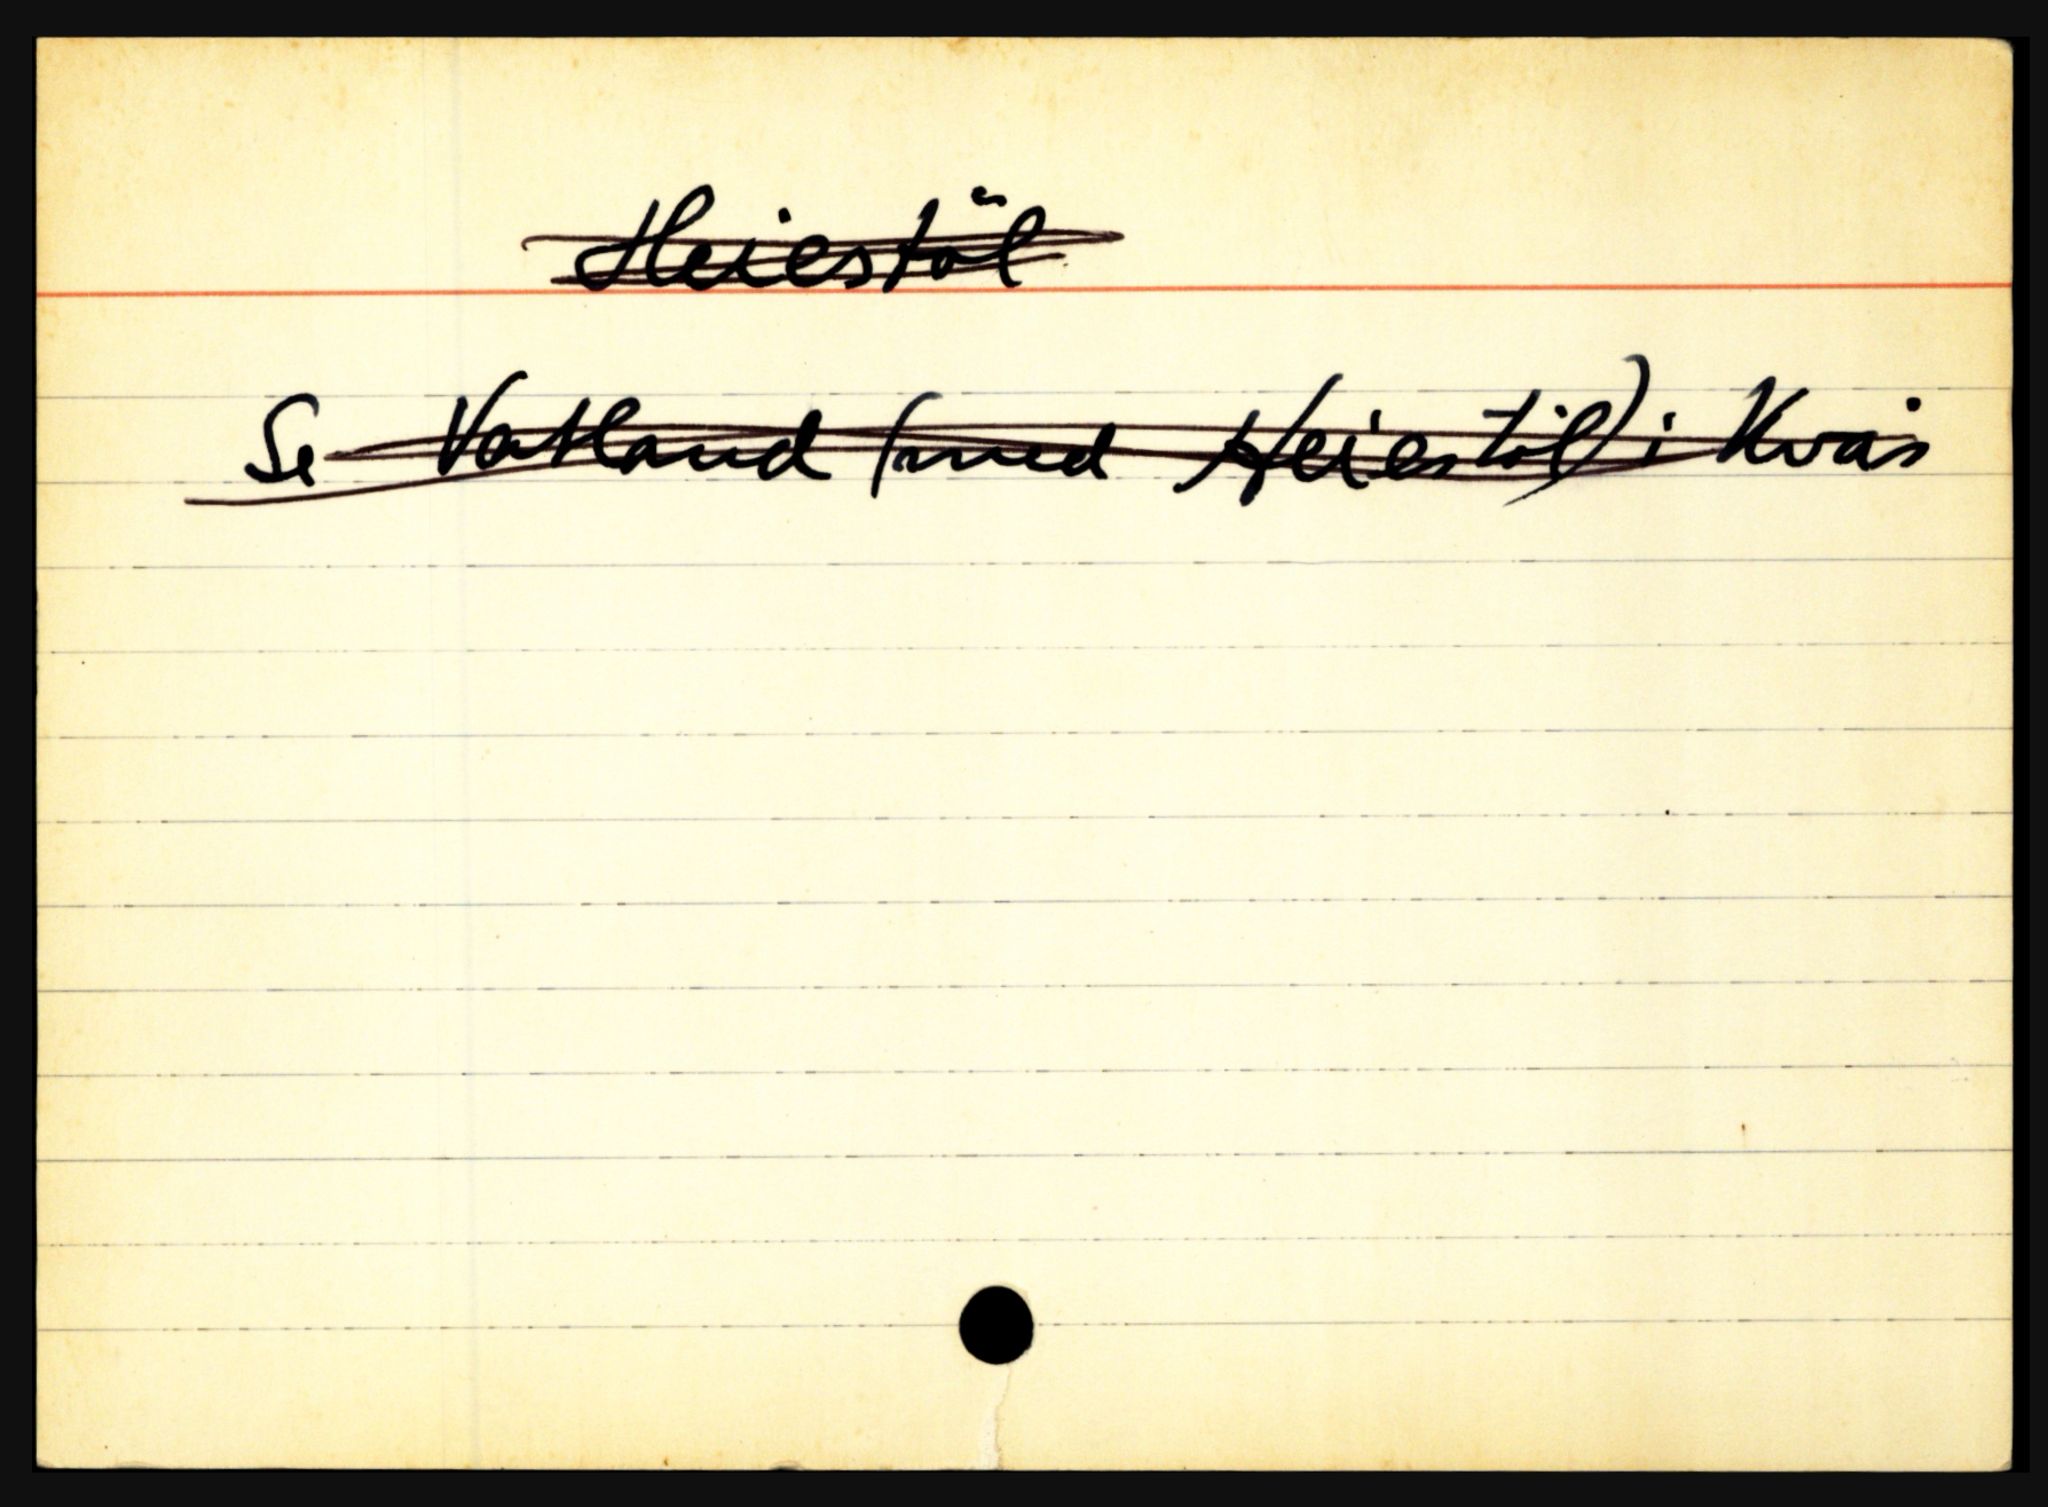 Heiestöl
Se Vatland (med Heiestöl) i Kvås